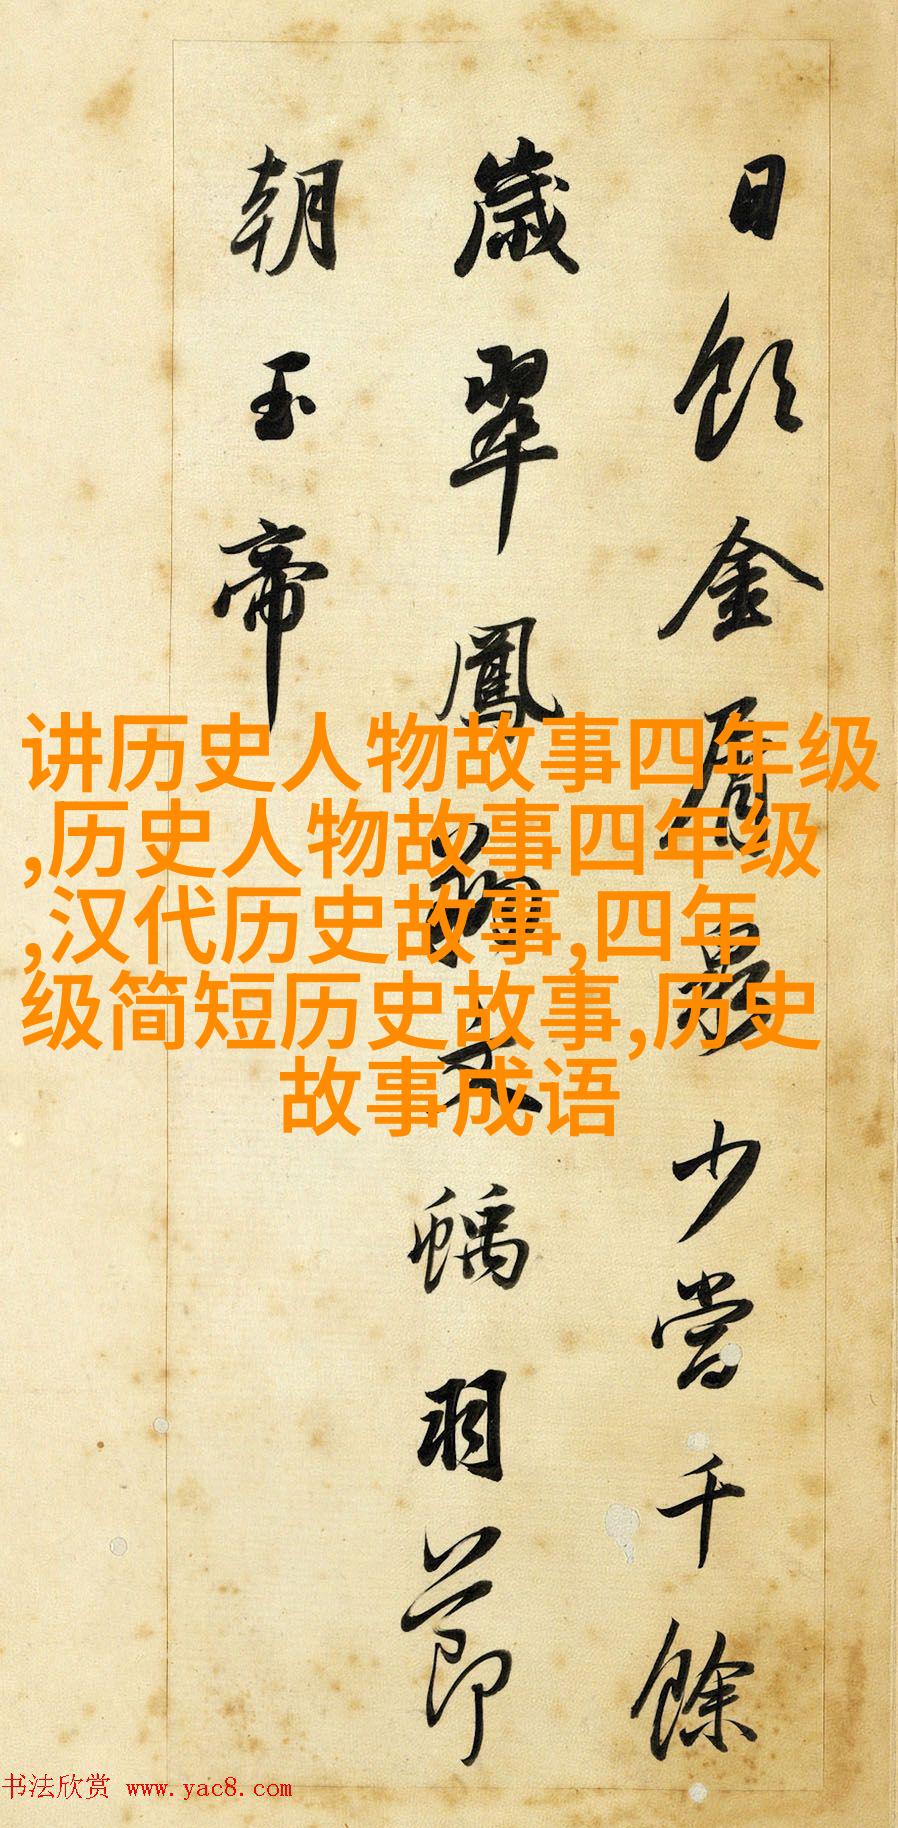 日飲金屑泉少當千餘
歲翠鳳翔文螭羽節
朝玉帝
讲历史人物故事四年级
,历史人物故事四年级
,汉代历史故事,四年
级简短历史故事,历史
故事成语
书法欣赏 www.yac8.com